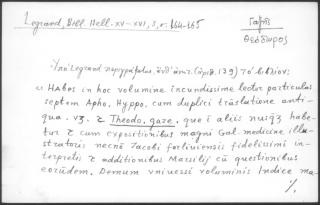 Legrand, Bibl. Hell. XV-XVI, 3, σ. 164-165
Γαζῆς
Θεόδωρος
Ὑπὸ Legrand περιγράφεται, ὑπ' ἀριθ. 139) τὸ βιβλίον:
« HAbes in hoc volumine iucundissime lector particulas
septem Apho, Hyppo, cum duplici trāslatione anti-
qua. vȝ. ⁊ Theodo, gaze, que ī aliis nusqȝ habe-
tur ⁊ cum expositionibus magni Gal-medicine illu-
stratoris necnō Jacobi forliuiensis fidelissimi in-
terpretis ⁊ additionibus Marsilij cū questionibus
eorūdem. Demum vniuersi voluminis Indice ma-
%.